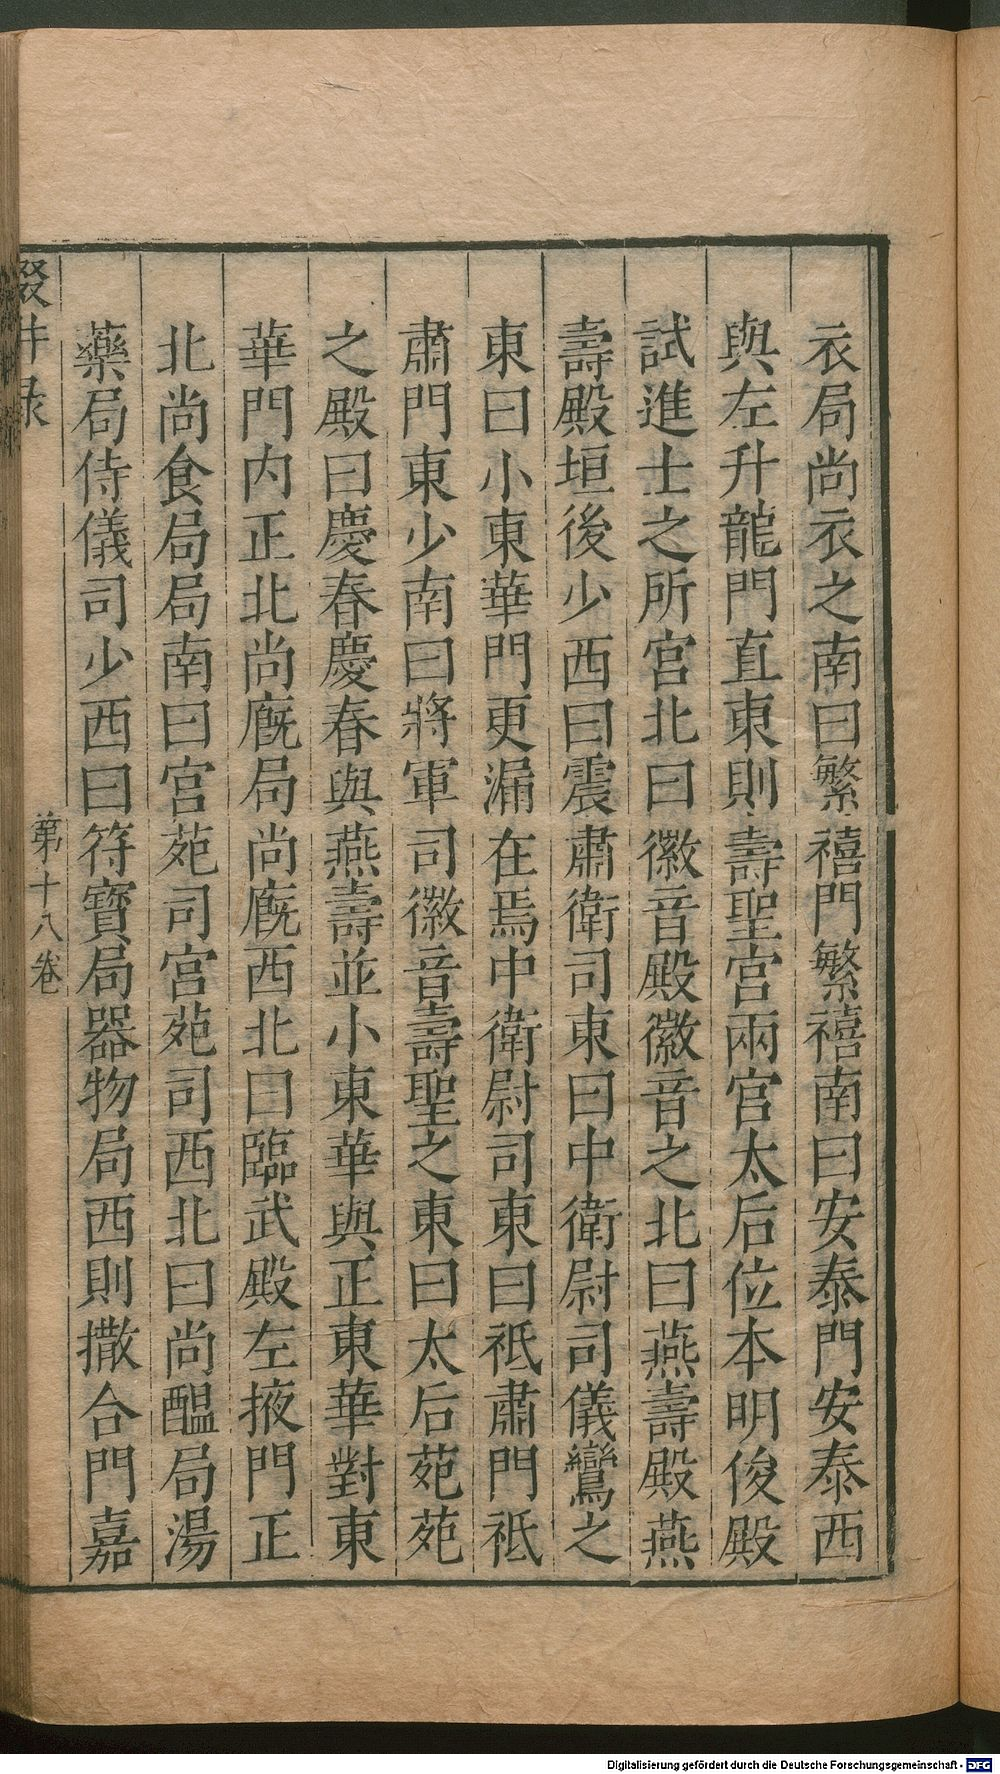 衣局尚衣之南曰繁禧門繁禧南曰安泰門安泰西
與左升龍門直東則壽聖宮兩宮太后位本明俊殿
試進士之所宮北曰徽音殿徽音之北曰燕壽殿燕
壽殿垣後少西曰震肅衛司東曰中衛尉司儀鸞之
東曰小東華門更漏在焉中衛尉司東曰祗肅門祗
肅門東少南曰將軍司徽音壽聖之東曰太后苑苑
之殿曰慶春慶春與燕壽並小東華與正東華對東
華門内正北尚廐局尚廐西北曰臨武殿左掖門正
北尚食局局南曰宮苑司宮苑司西北曰尚醞局湯
藥局侍儀司少西曰符寶局器物局西則撒合門嘉
輟畊錄
第十八卷
Digitalisierung gefördert durch die Deutsche Forschungsgemeinschaft - DFG